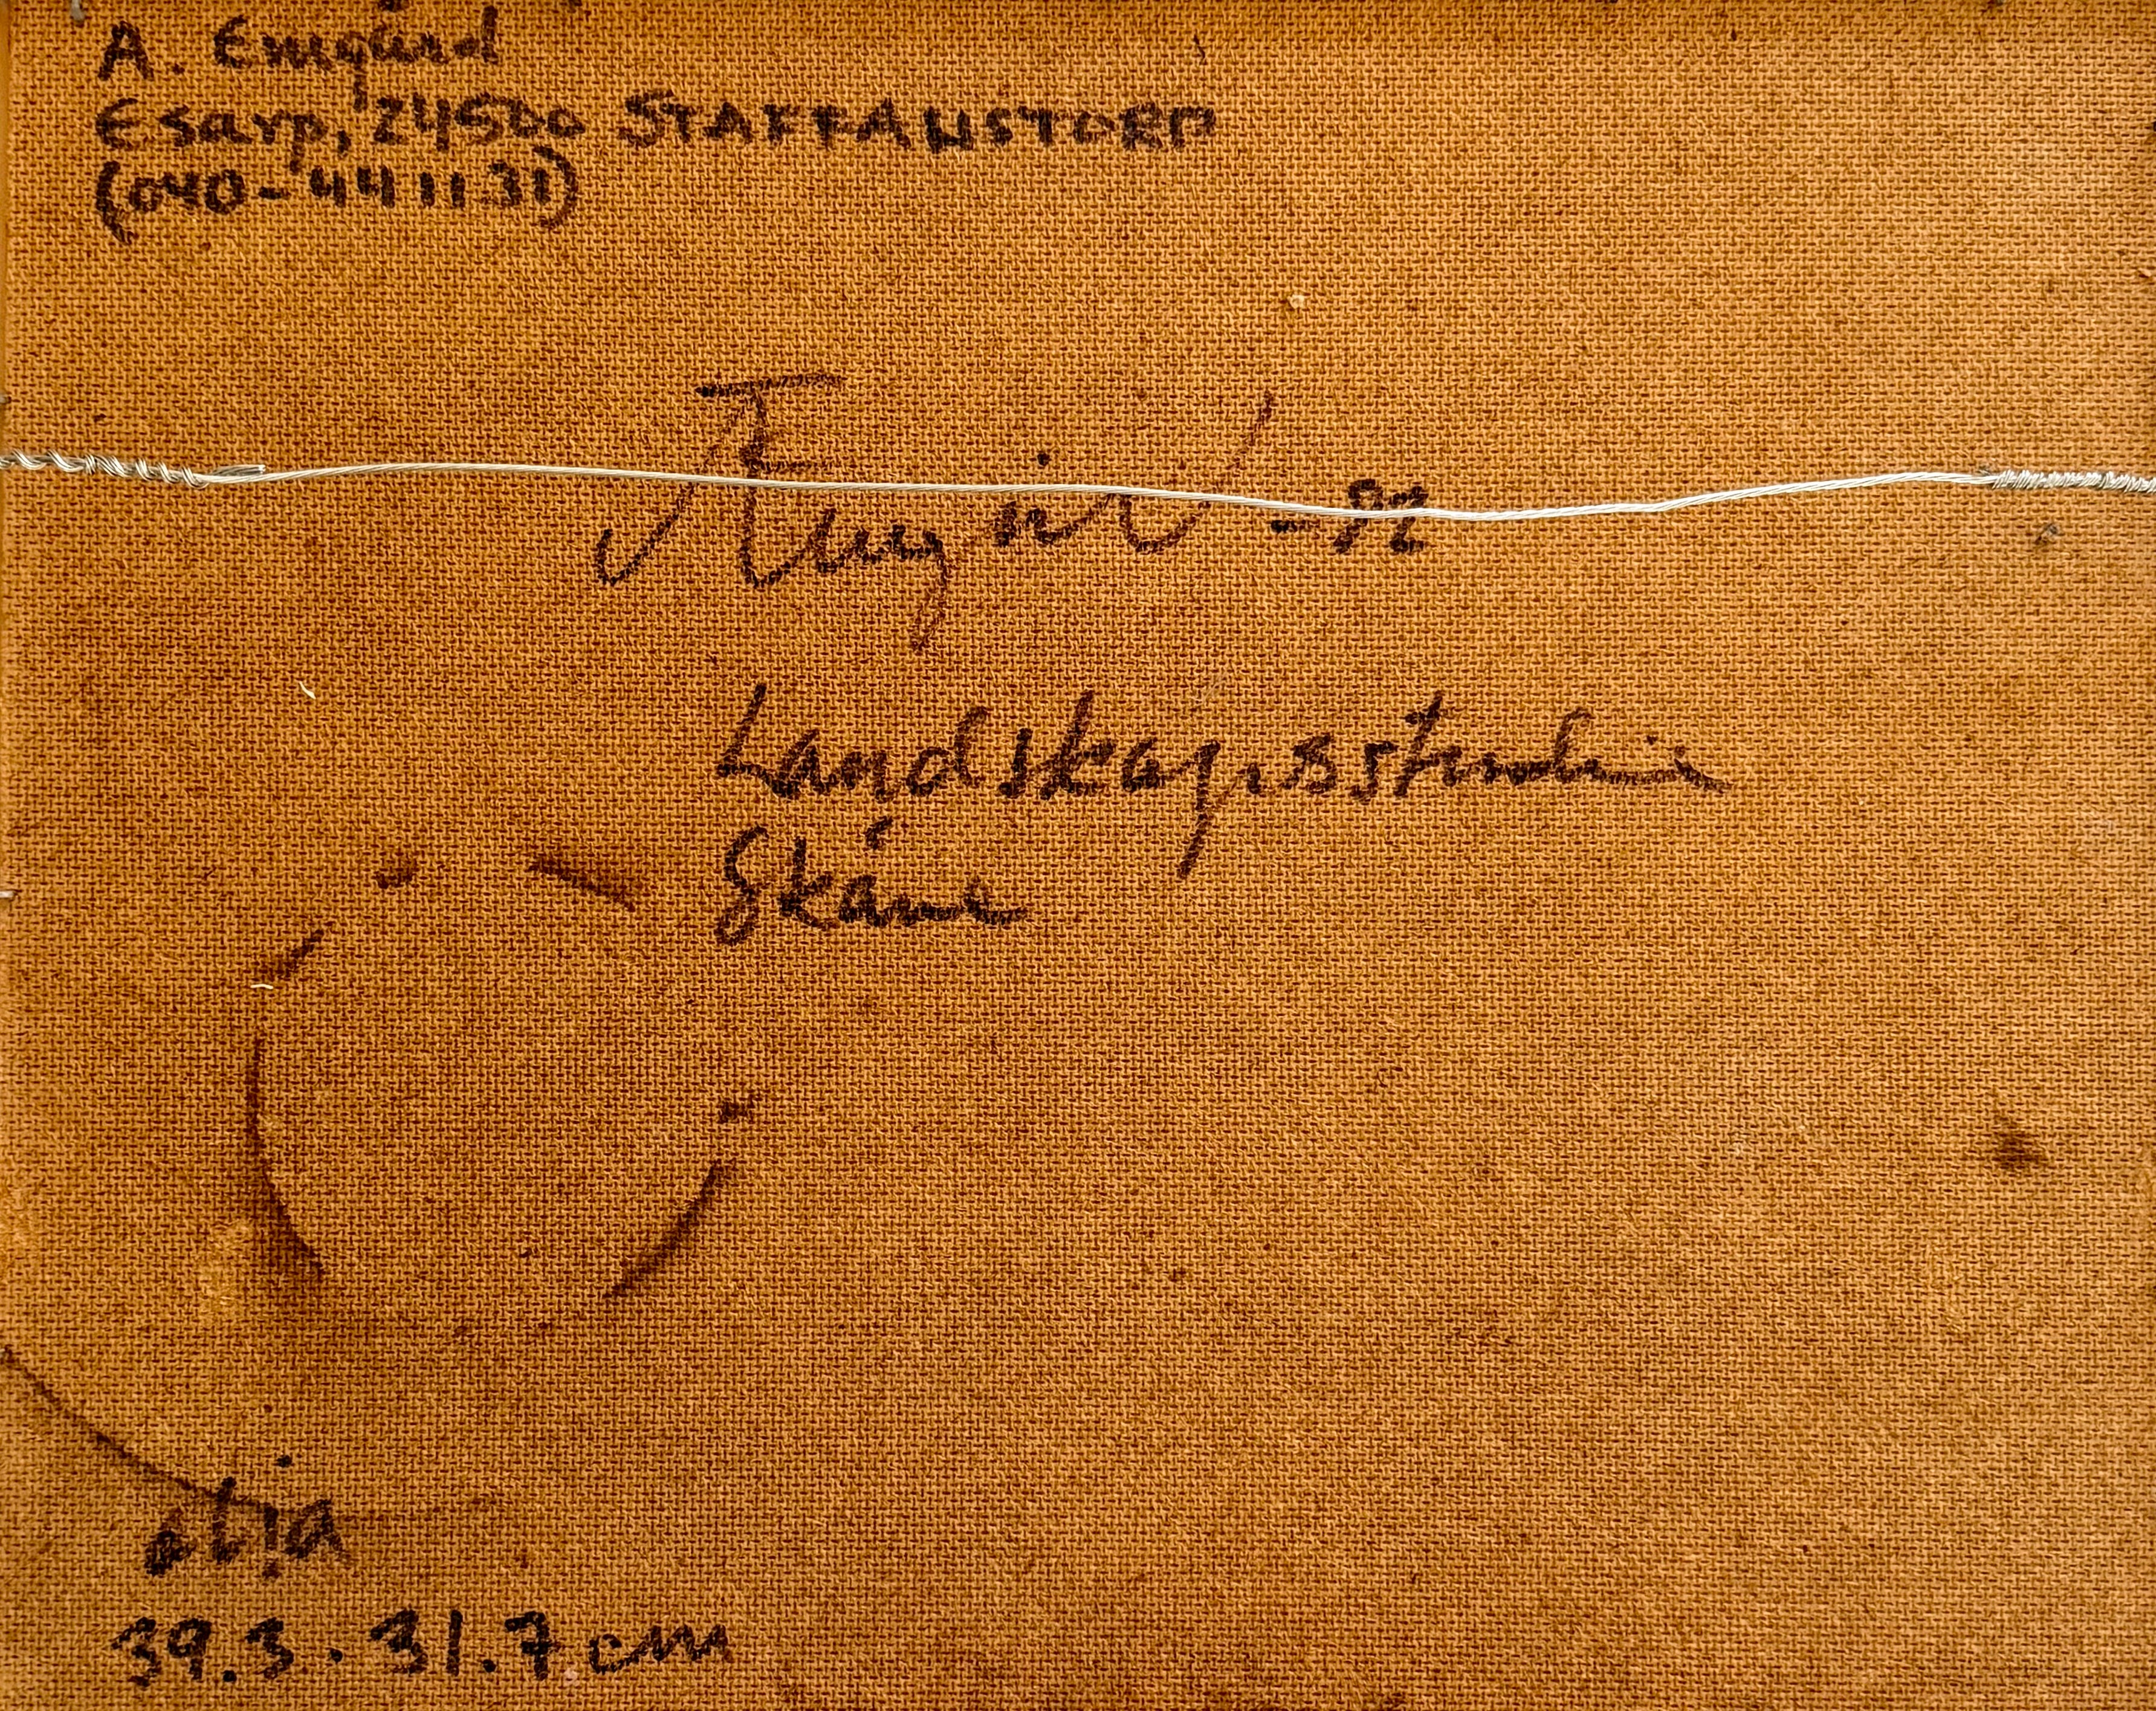 A. Emgård
Esarp, 24500 STAFFANSTORP
(040-441131)
Landskapsstudie
Skåne
olja
39.3. 31.7 cm